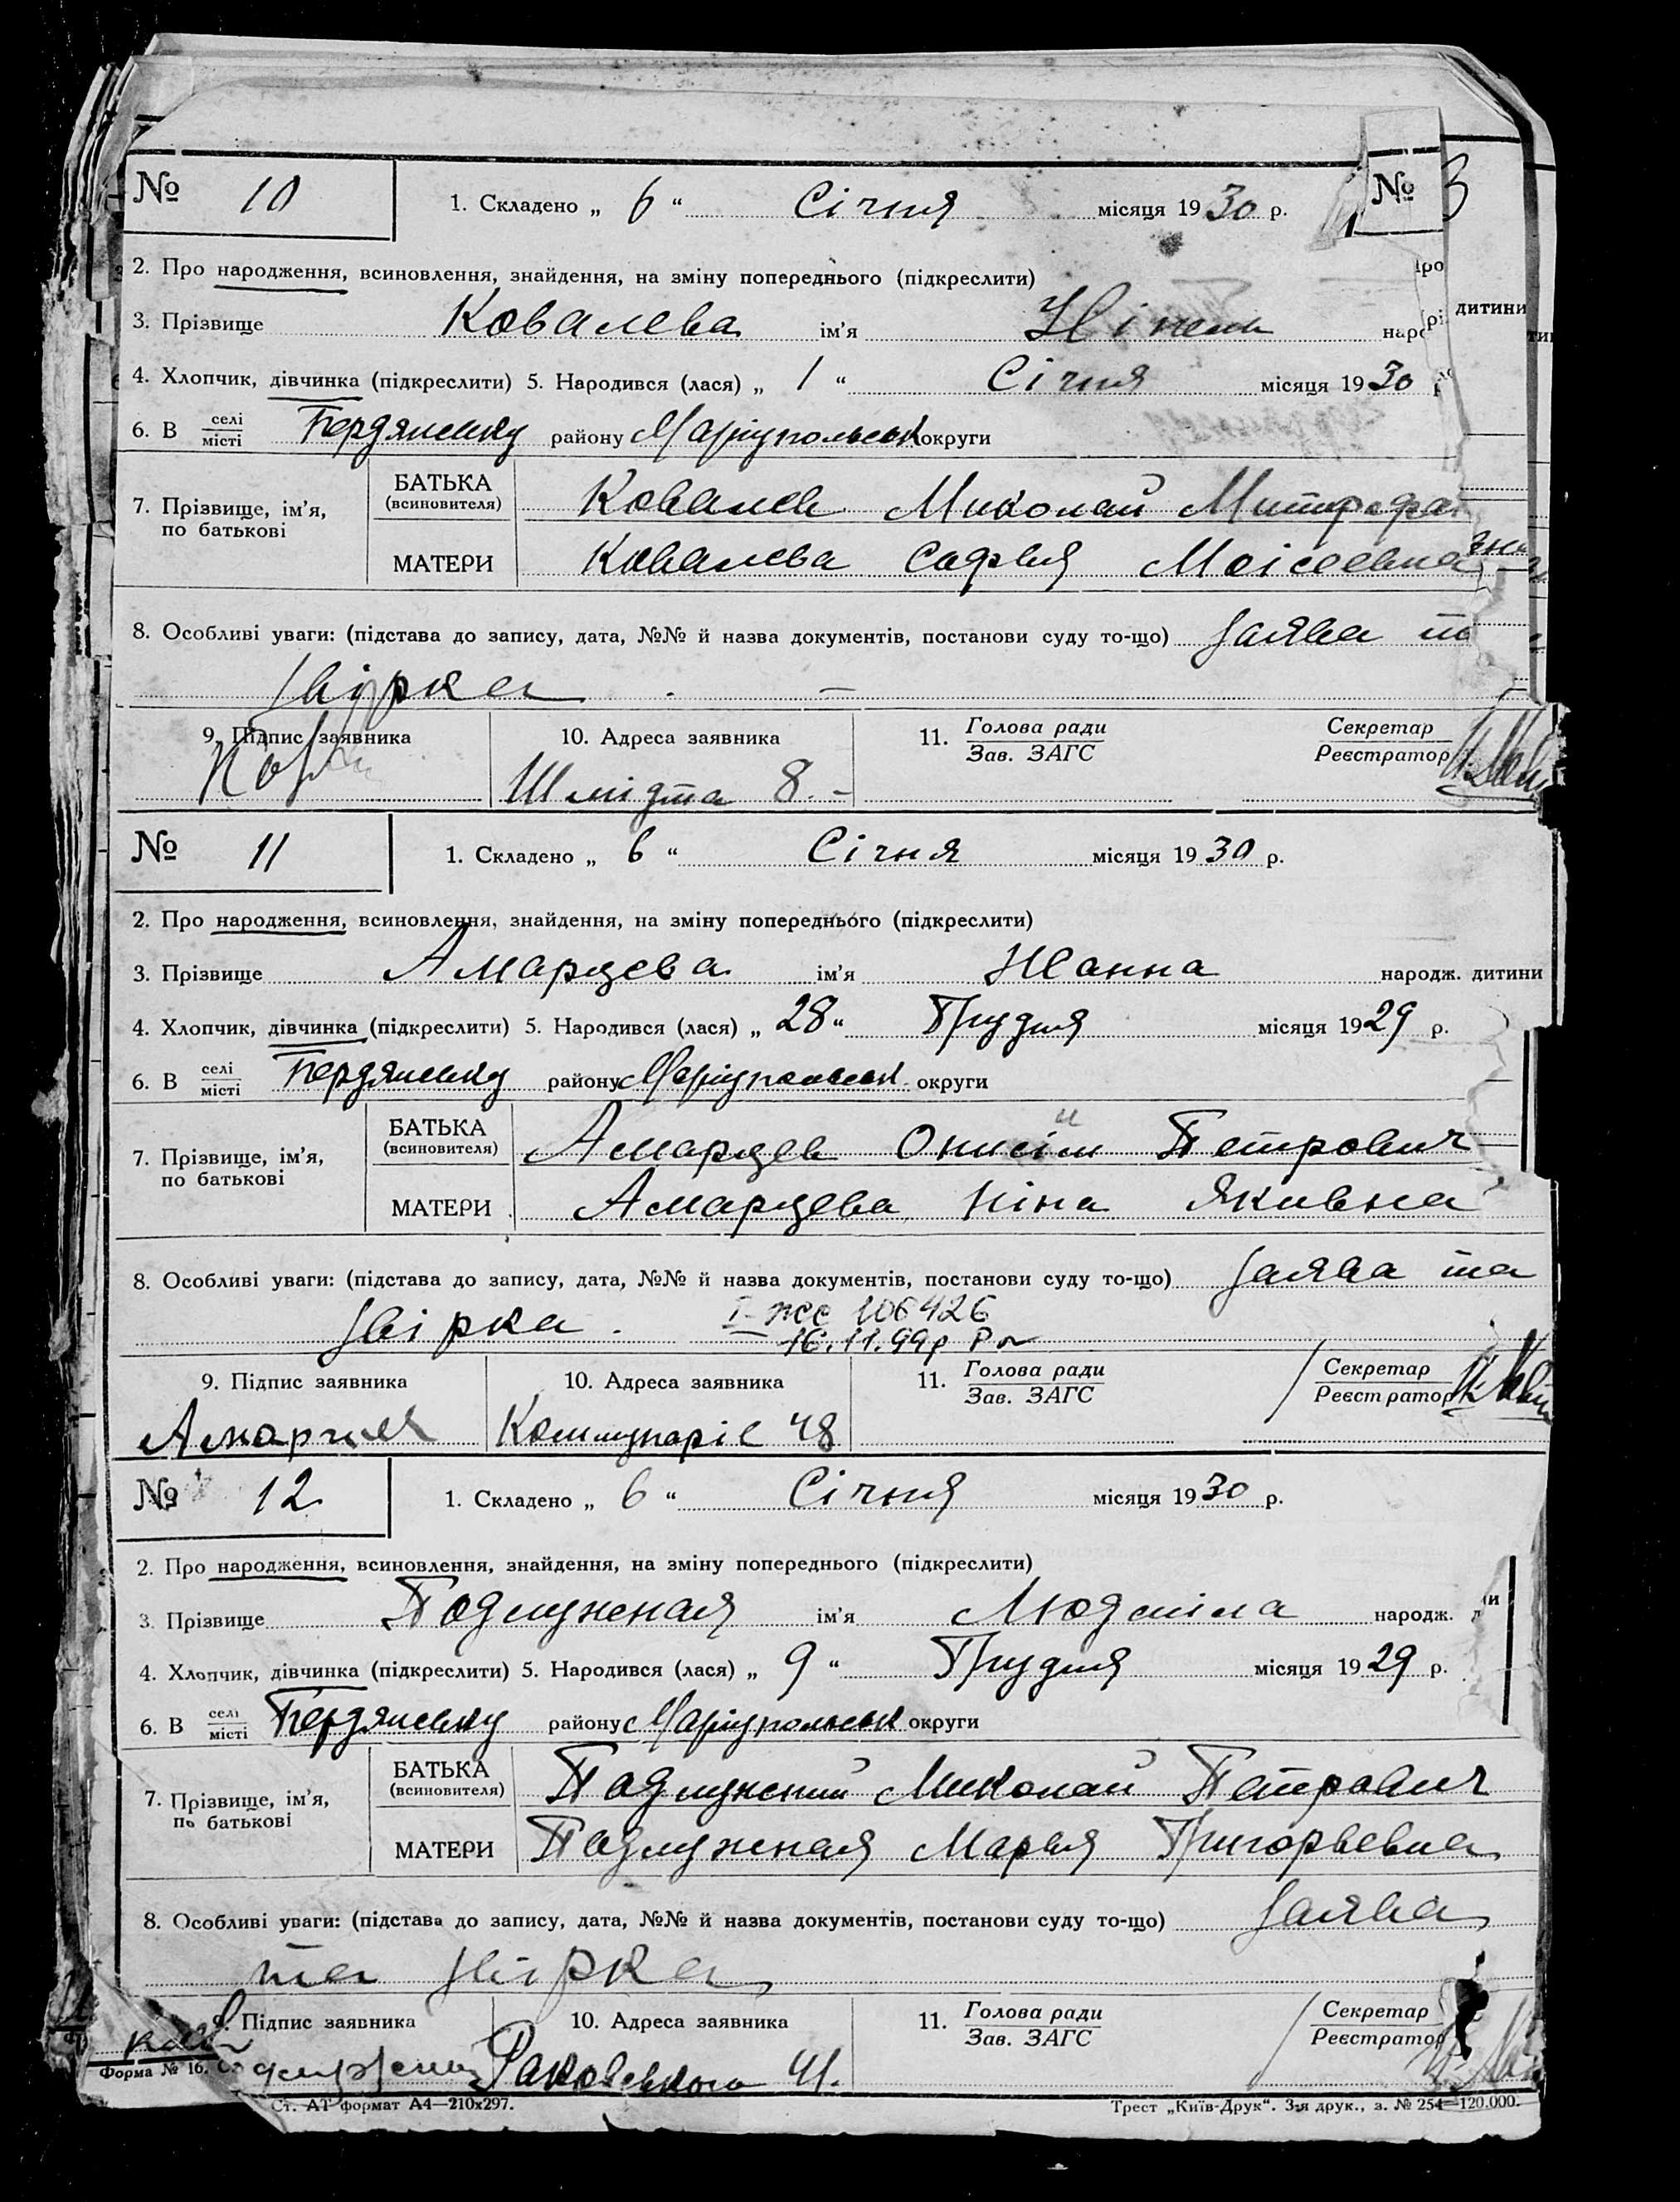 № 10 1. Складено „ 6 “ Січня місяця 1930 р. №
2. Про народження, всиновлення, знайдення, на зміну попереднього (підкреслити)
3. Прізвище Ковалева ім'я Нінель наро дитини
4. Хлопчик, дівчинка (підкреслити) 5. Народився (лася) „ 1 “ Січня місяця 1930
6. В селі/місті Бердянську району Маріупольськ округи
7. Прізвище, ім'я, по батькові
БАТЬКА (всиновителя) Ковалев Миколай Митрофа
МАТЕРИ Ковалева Софья Моісеевна
8. Особливі уваги: (підстава до запису, дата, №№ й назва документів, постанови суду то-що) Заява та
звірка
9. Підпис заявника 10. Адреса заявника 11. Голова ради/Зав. ЗАГС Секретар/Реєстратор
Шмідта 8.
№ 11 1. Складено „ 6 “ Січня місяця 1930 р.
2. Про народження, всиновлення, знайдення, на зміну попереднього (підкреслити)
3. Прізвище Амарцева ім'я Жанна народж. дитини
4. Хлопчик, дівчинка (підкреслити) 5. Народився (лася) „ 28 “ Грудня місяця 1929 р.
6. В селі/місті Бердянську району Маріупольськ округи
7. Прізвище, ім'я, по батькові
БАТЬКА (всиновителя) Амарцев Онисім Петрович
МАТЕРИ Амарцева Ніна Яківна
8. Особливі уваги: (підстава до запису, дата, №№ й назва документів, постанови суду то-що) Заява та
звірка. І-жс 106426
16.11.99р
9. Підпис заявника 10. Адреса заявника 11. Голова ради/Зав. ЗАГС Секретар/Реєстратор
Коммунаріє 48
№ 12 1. Складено „ 6 “ Січня місяця 1930 р.
2. Про народження, всиновлення, знайдення, на зміну попереднього (підкреслити)
3. Прізвище Подлужная ім'я Людміла народж.
4. Хлопчик, дівчинка (підкреслити) 5. Народився (лася) „ 9 “ Грудня місяця 1929 р.
6. В селі/місті Бердянську району Маріупольськ округи
7. Прізвище, ім'я, по батькові
БАТЬКА (всиновителя) Подлужний Миколай Петрович
МАТЕРИ Подлужная Марья Григорьевна
8. Особливі уваги: (підстава до запису, дата, №№ й назва документів, постанови суду то-що) Заява
та звірка
9. Підпис заявника 10. Адреса заявника 11. Голова ради/Зав. ЗАГС Секретар/Реєстратор
Раковського 41.
Форма № 16.
Ст. АТ формат А4—210х297. Трест „Київ-Друк“. 3-я друк., з. № 254—120.000.